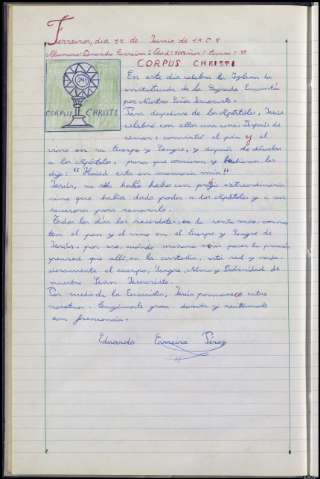 Ferreros, día 22 de Junio de 19
Alumno: Eduardo Ferreira Edad: años Curso:
CORPUS CHRISTI
CORPUS CHRISTI
En este día celebra la Iglesia la
institución de la Sagrada Eucaristía
por Nuestro Señor Jesucristo.
Para despedirse de los Apóstoles, Jesús
celebró con ellos una cena. Después de
cenar, convirtió el pan y el
vino en su Cuerpo y Sangre, y después de dárselos
a los Apóstoles, para que comieran y bebieran les
dijo: "Haced esto en memoria mía"
Jesús, no sólo había hecho un extraordinario
sino que había dado poder a los Apóstoles y a sus
sucesores para renovarlo.
Todos los días los sacerdotes en la santa misa convier
ten el pan y el vino en el Cuerpo y Sangre de
Jesús, por eso, cuando
pensad que allí, en la custodia, está real y verda-
deramente el cuerpo, Sangre, Alma y Divinidad de
nuestro Jesucristo.
Por medio de la Eucaristía, Jesús permanece entre
nosotros
con frecuencia.
Eduardo Ferreira Pérez